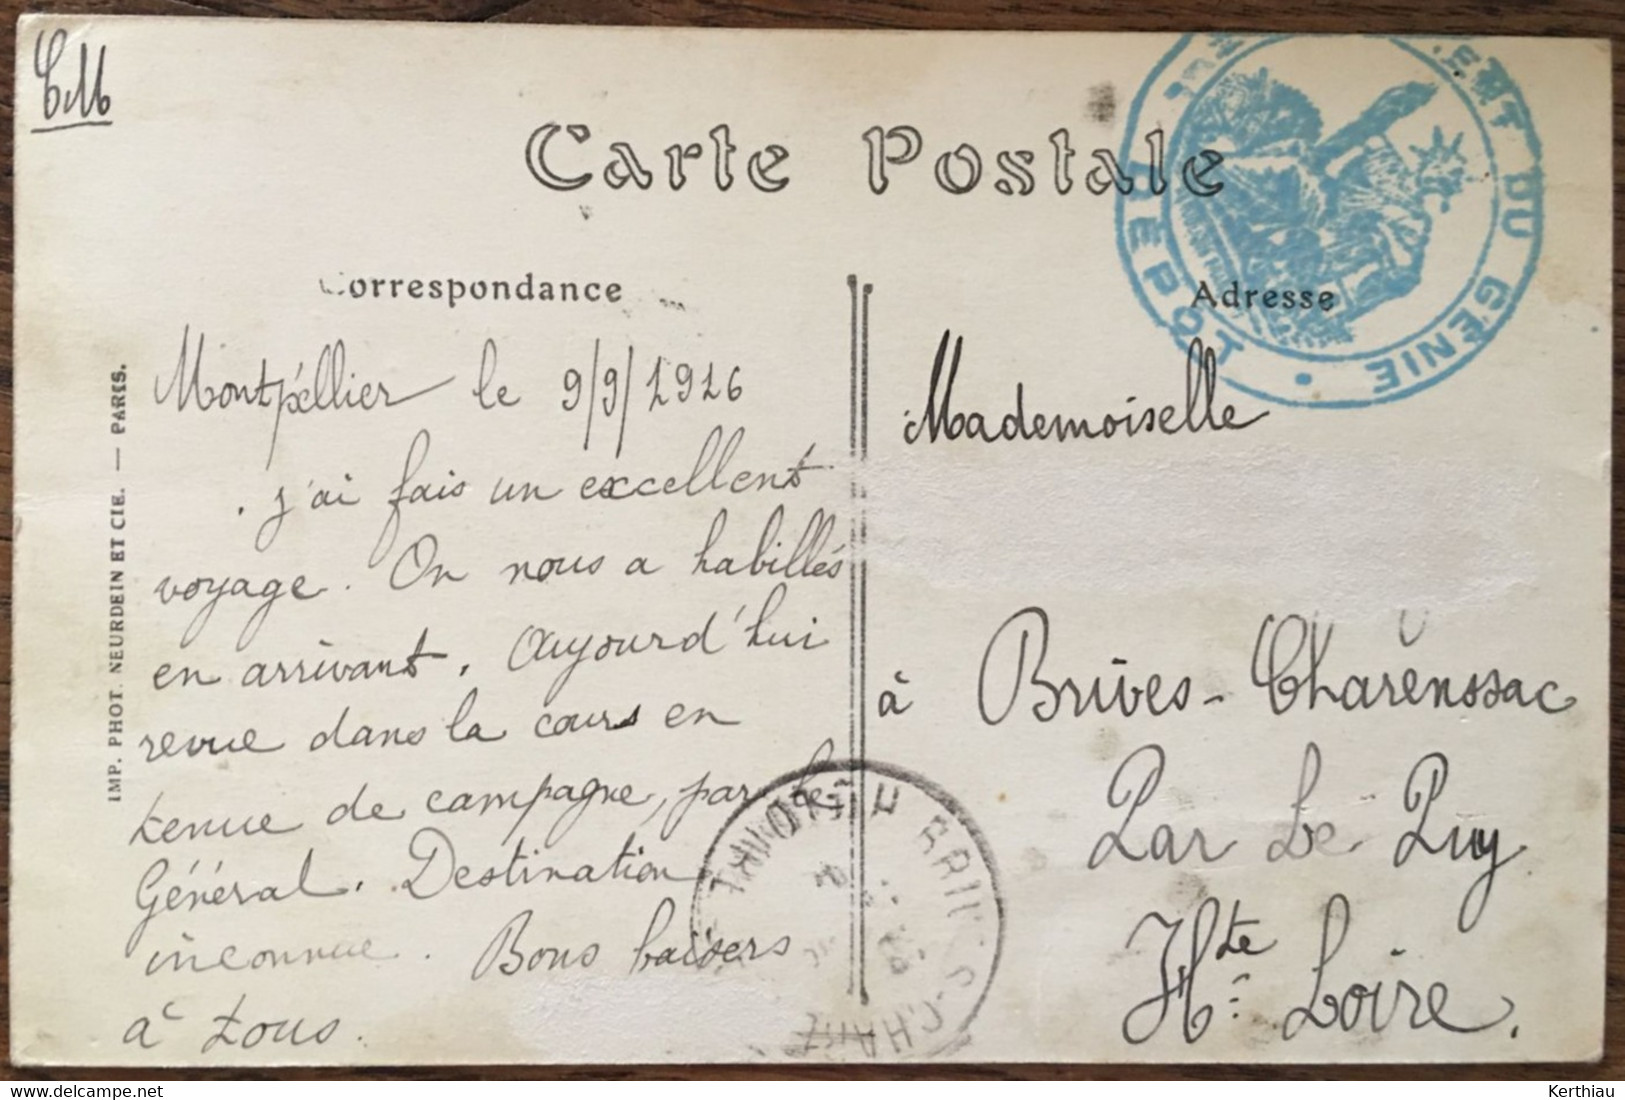 CM
Carte Postale
Correspondance
Montpéllier le 9/9/1916
j'ai fais un excellent
voyage. On nous a habillés
en arrivant. Aujourd'hui
revue dans la cours en
tenue de campagne, par le
Général. Destination
inconnue. Bons baisers
à tous.
IMP. PHOT. NEURDEIN ET CIE. — PARIS.
Adresse
Mademoiselle
à Brives-Charenssac
Par Le Puy
Hte Loire.
DU GÉNIE • DEPOT
Kerthiau